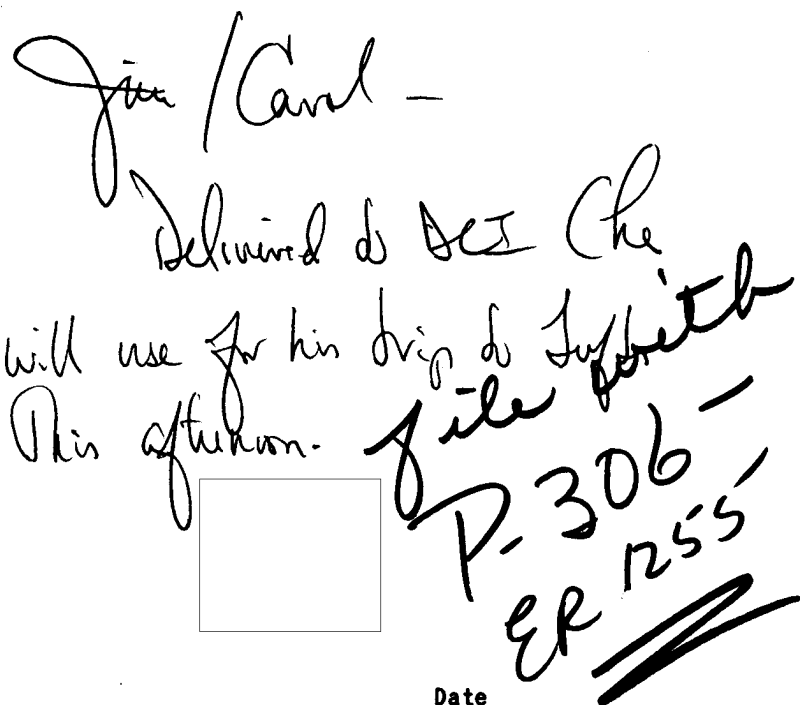 Jim / Carol -
Delivered to DCI (he
will use for his trip to
This afternoon.
file with
P-306-
ER 1255
Date